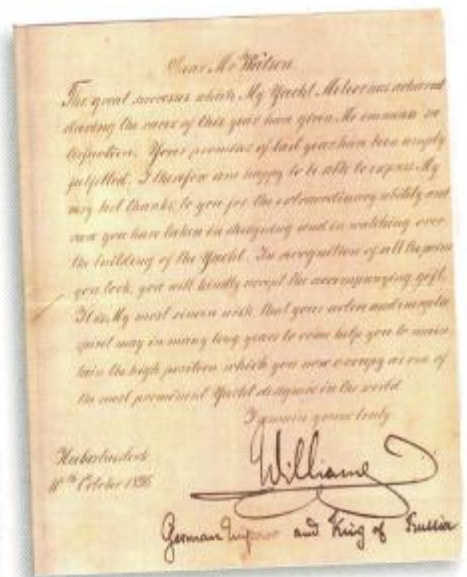 Dear Mr Watson.
The great successes which My Yacht Meteor has achieved
during the races of this year have given Me immense sa
tisfaction. Your promises of last year have been amply
fulfilled. I therefore am happy to be able to express My
very best thanks to you for the extraordinary ability and
care you have taken in designing and in watching over
the building of the Yacht. In recognition of all the pains
you took, you will kindly accept the accompanying gift.
It is My most sincere wish that your and
may in many long years to come help you to main
tain the high position which you now occupy as one of
the most prominent Yacht designers in the world.
I remain yours truly
William
Hubertusstock
October 1896
German Emperor and King of Prussia